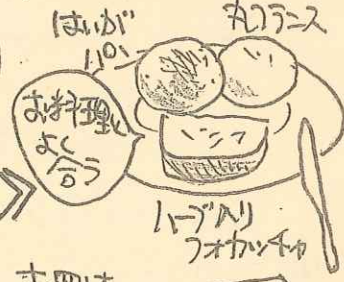 はいが
パン
丸フランス
お料理に
よく
合う
ハーブ入り
フォカッチャ